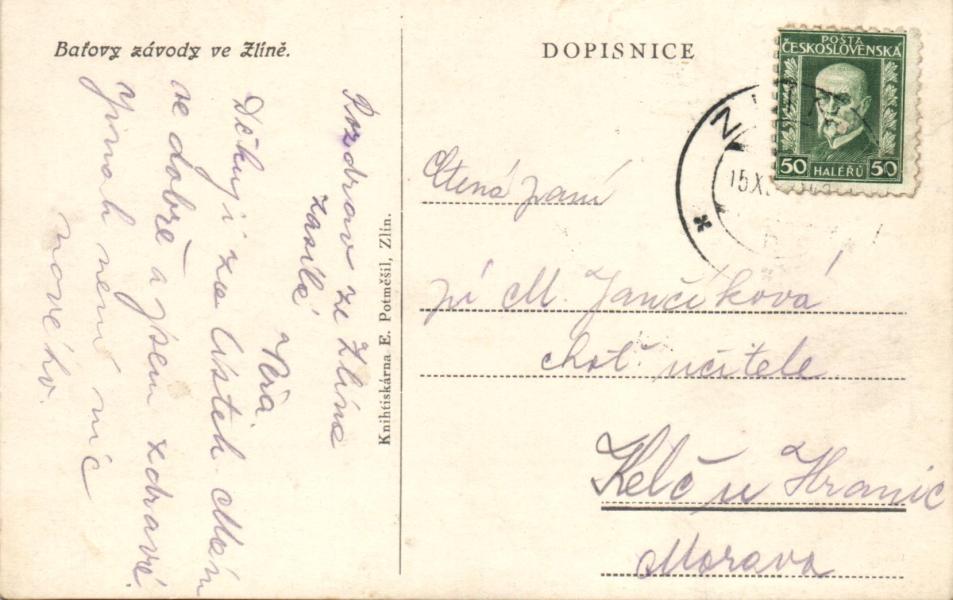 Baťovy závody ve Zlíně.
DOPISNICE
POŠTA
ČESKOSLOVENSKÁ
50 HALÉŘŮ 50
15.X
Pozdrav ze Zlína
zasílá
Děkuji za lístek. Mám
se dobře a jsem zdravá.
Jinak není nic
nového.
Knihtiskárna E. Potměšil, Zlín.
Ctěná paní
pí M. Jančíková
choť. učitele
Kelč u Hranic
Morava